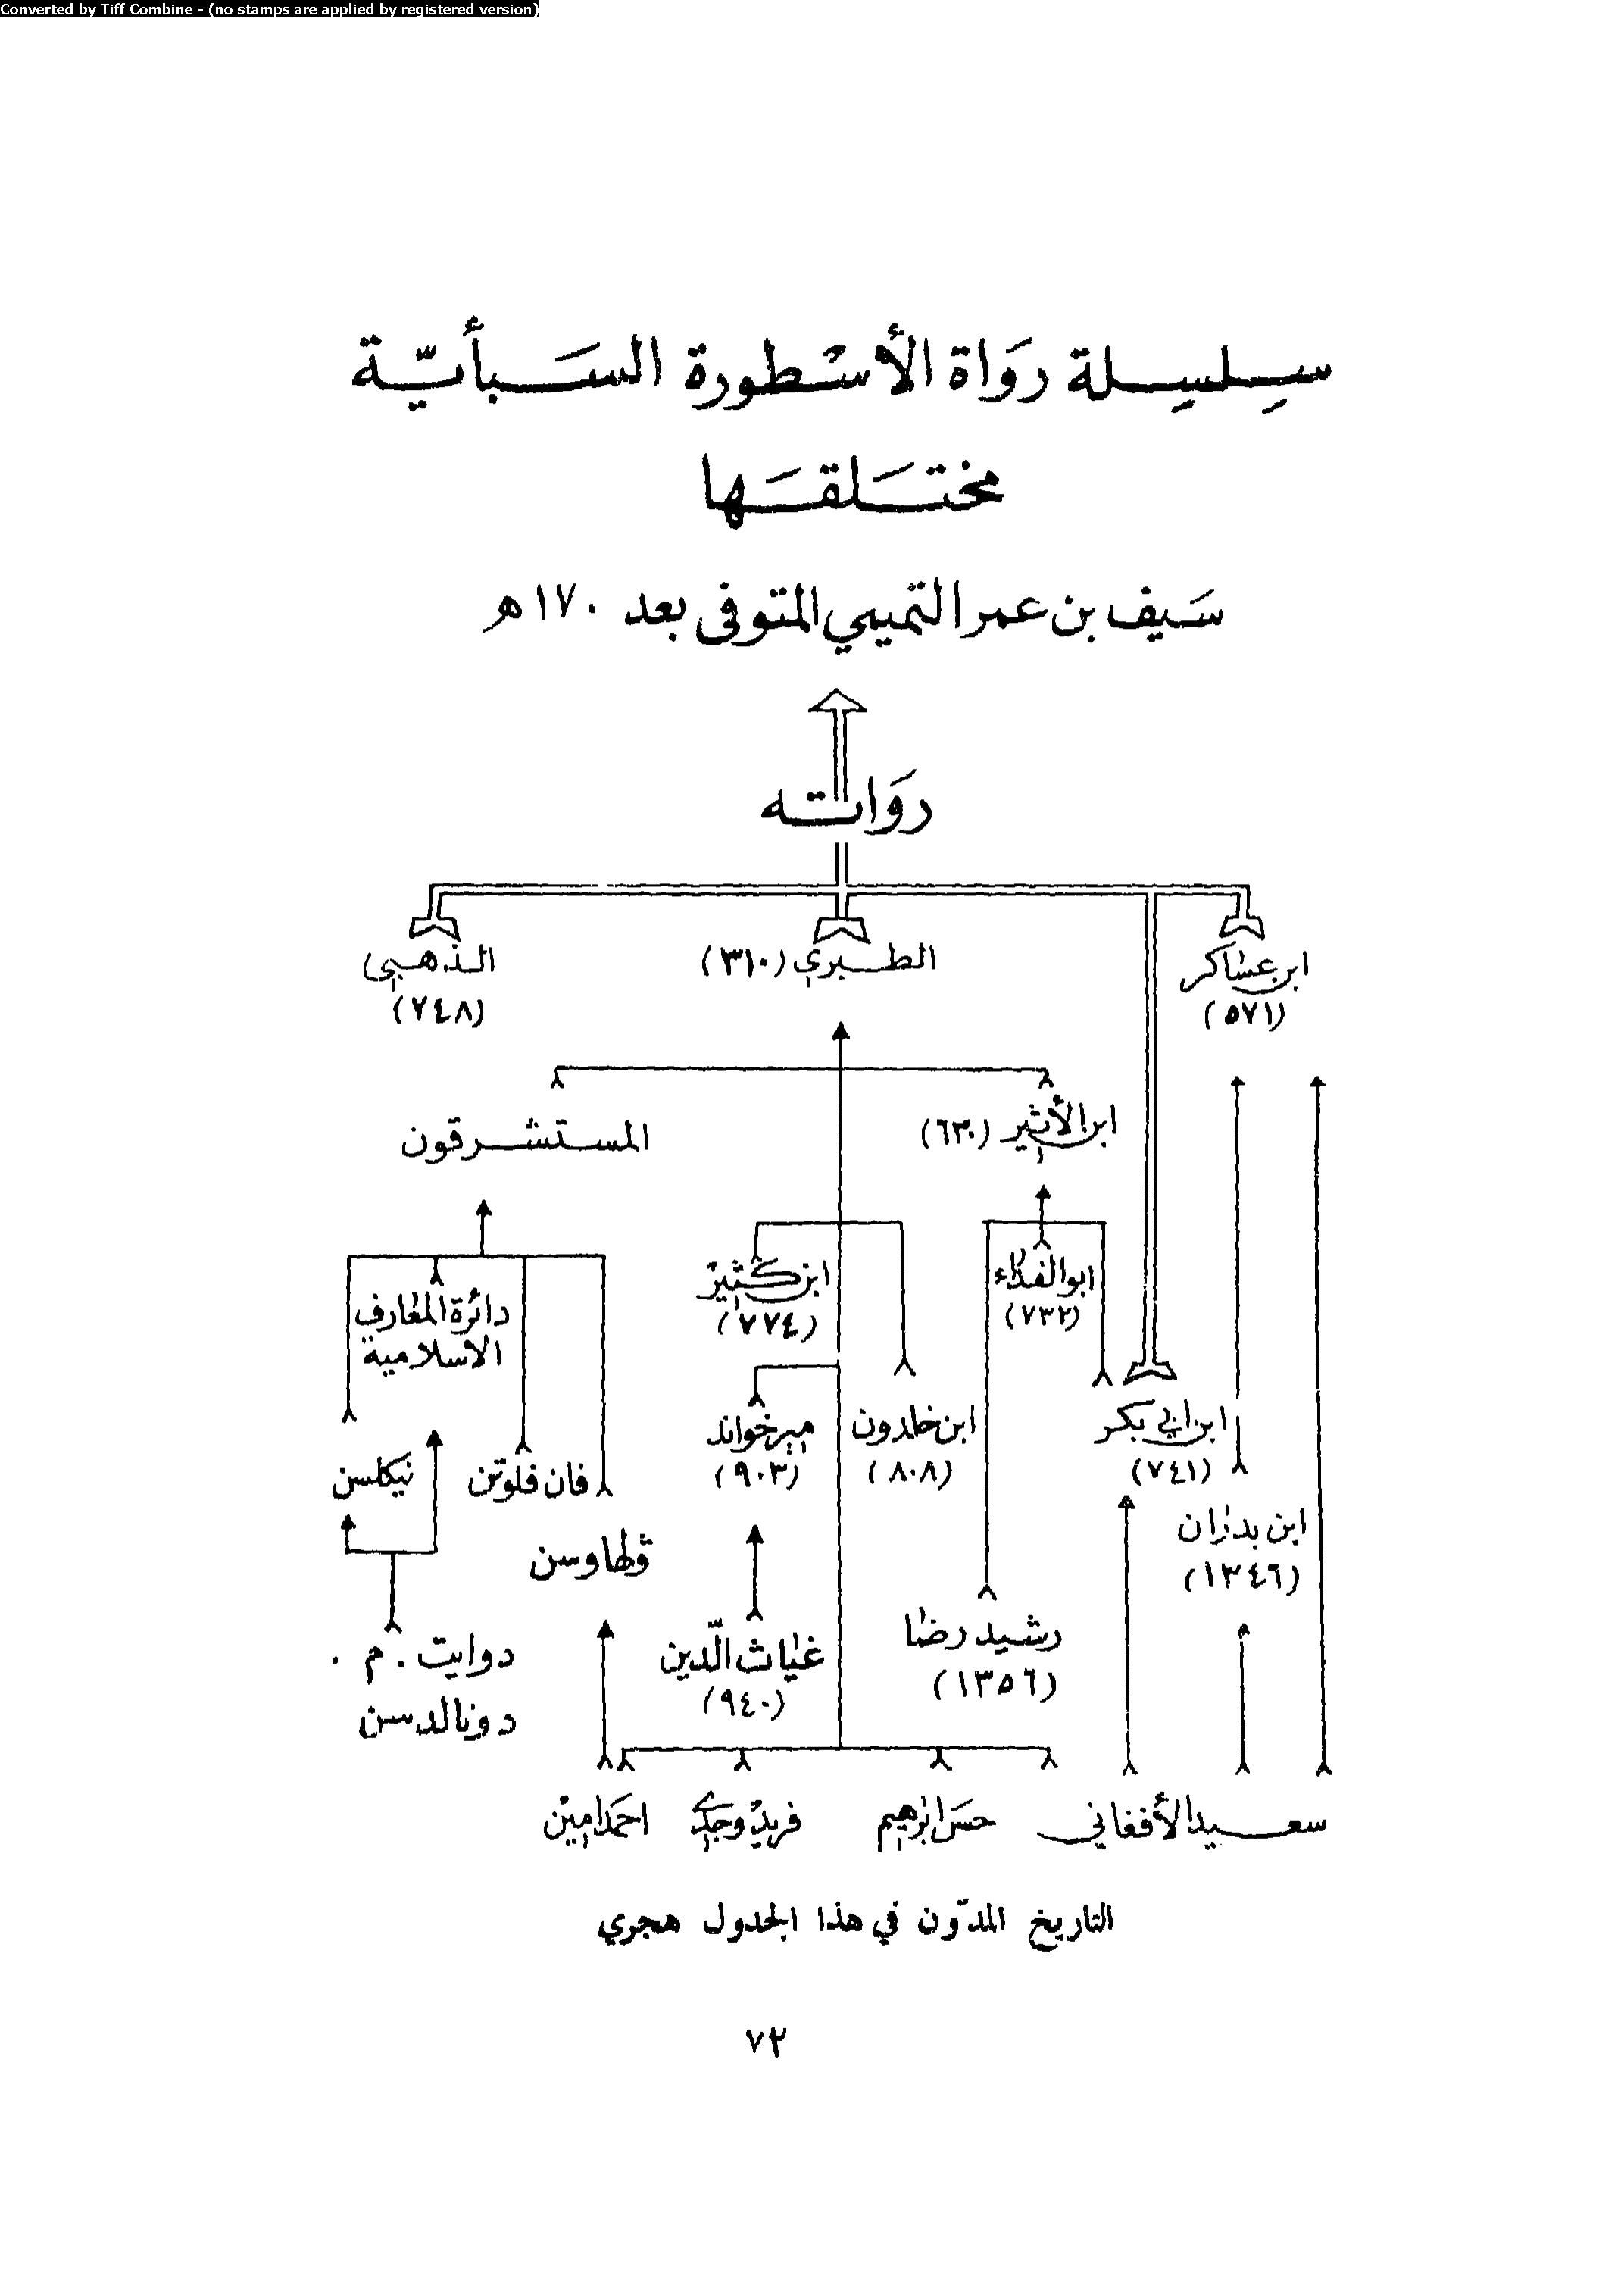 Converted by Tiff Combine - (no stamps are applied by registered version)
سِلسِلة رَوَاة الأسْطورة السَبأيّة
مختَلقَها
سَيف بن عمر التميمي المتوفى بعد ١٧٠ هـ
رَوَاته
ابن عساكر
(٥٧١)
الطبري (٣١٠)
الذهبي
(٧٤٨)
ابن الأثير (٦٣٠)
المستشرقون
ابو الفداء
(٧٣٢)
ابن كثير
(٧٧٤)
دائرة المعارف
الاسلامية
ابن ابي بكر
(٧٤١)
ابن خلدون
(٨٠٨)
ميرخواند
(٩٠٣)
فان فلوتن
نيكلسن
ابن بدران
(١٣٤٦)
ولهاوسن
رشيد رضا
(١٣٥٦)
غياث الّدين
(٩٤٠)
دوايت . م .
دونالدسن
سعيد الأفغاني
حسن ابراهيم
فريد وجدي
احمد امين
التاريخ المدّون في هذا الجدول هجري
٧٢